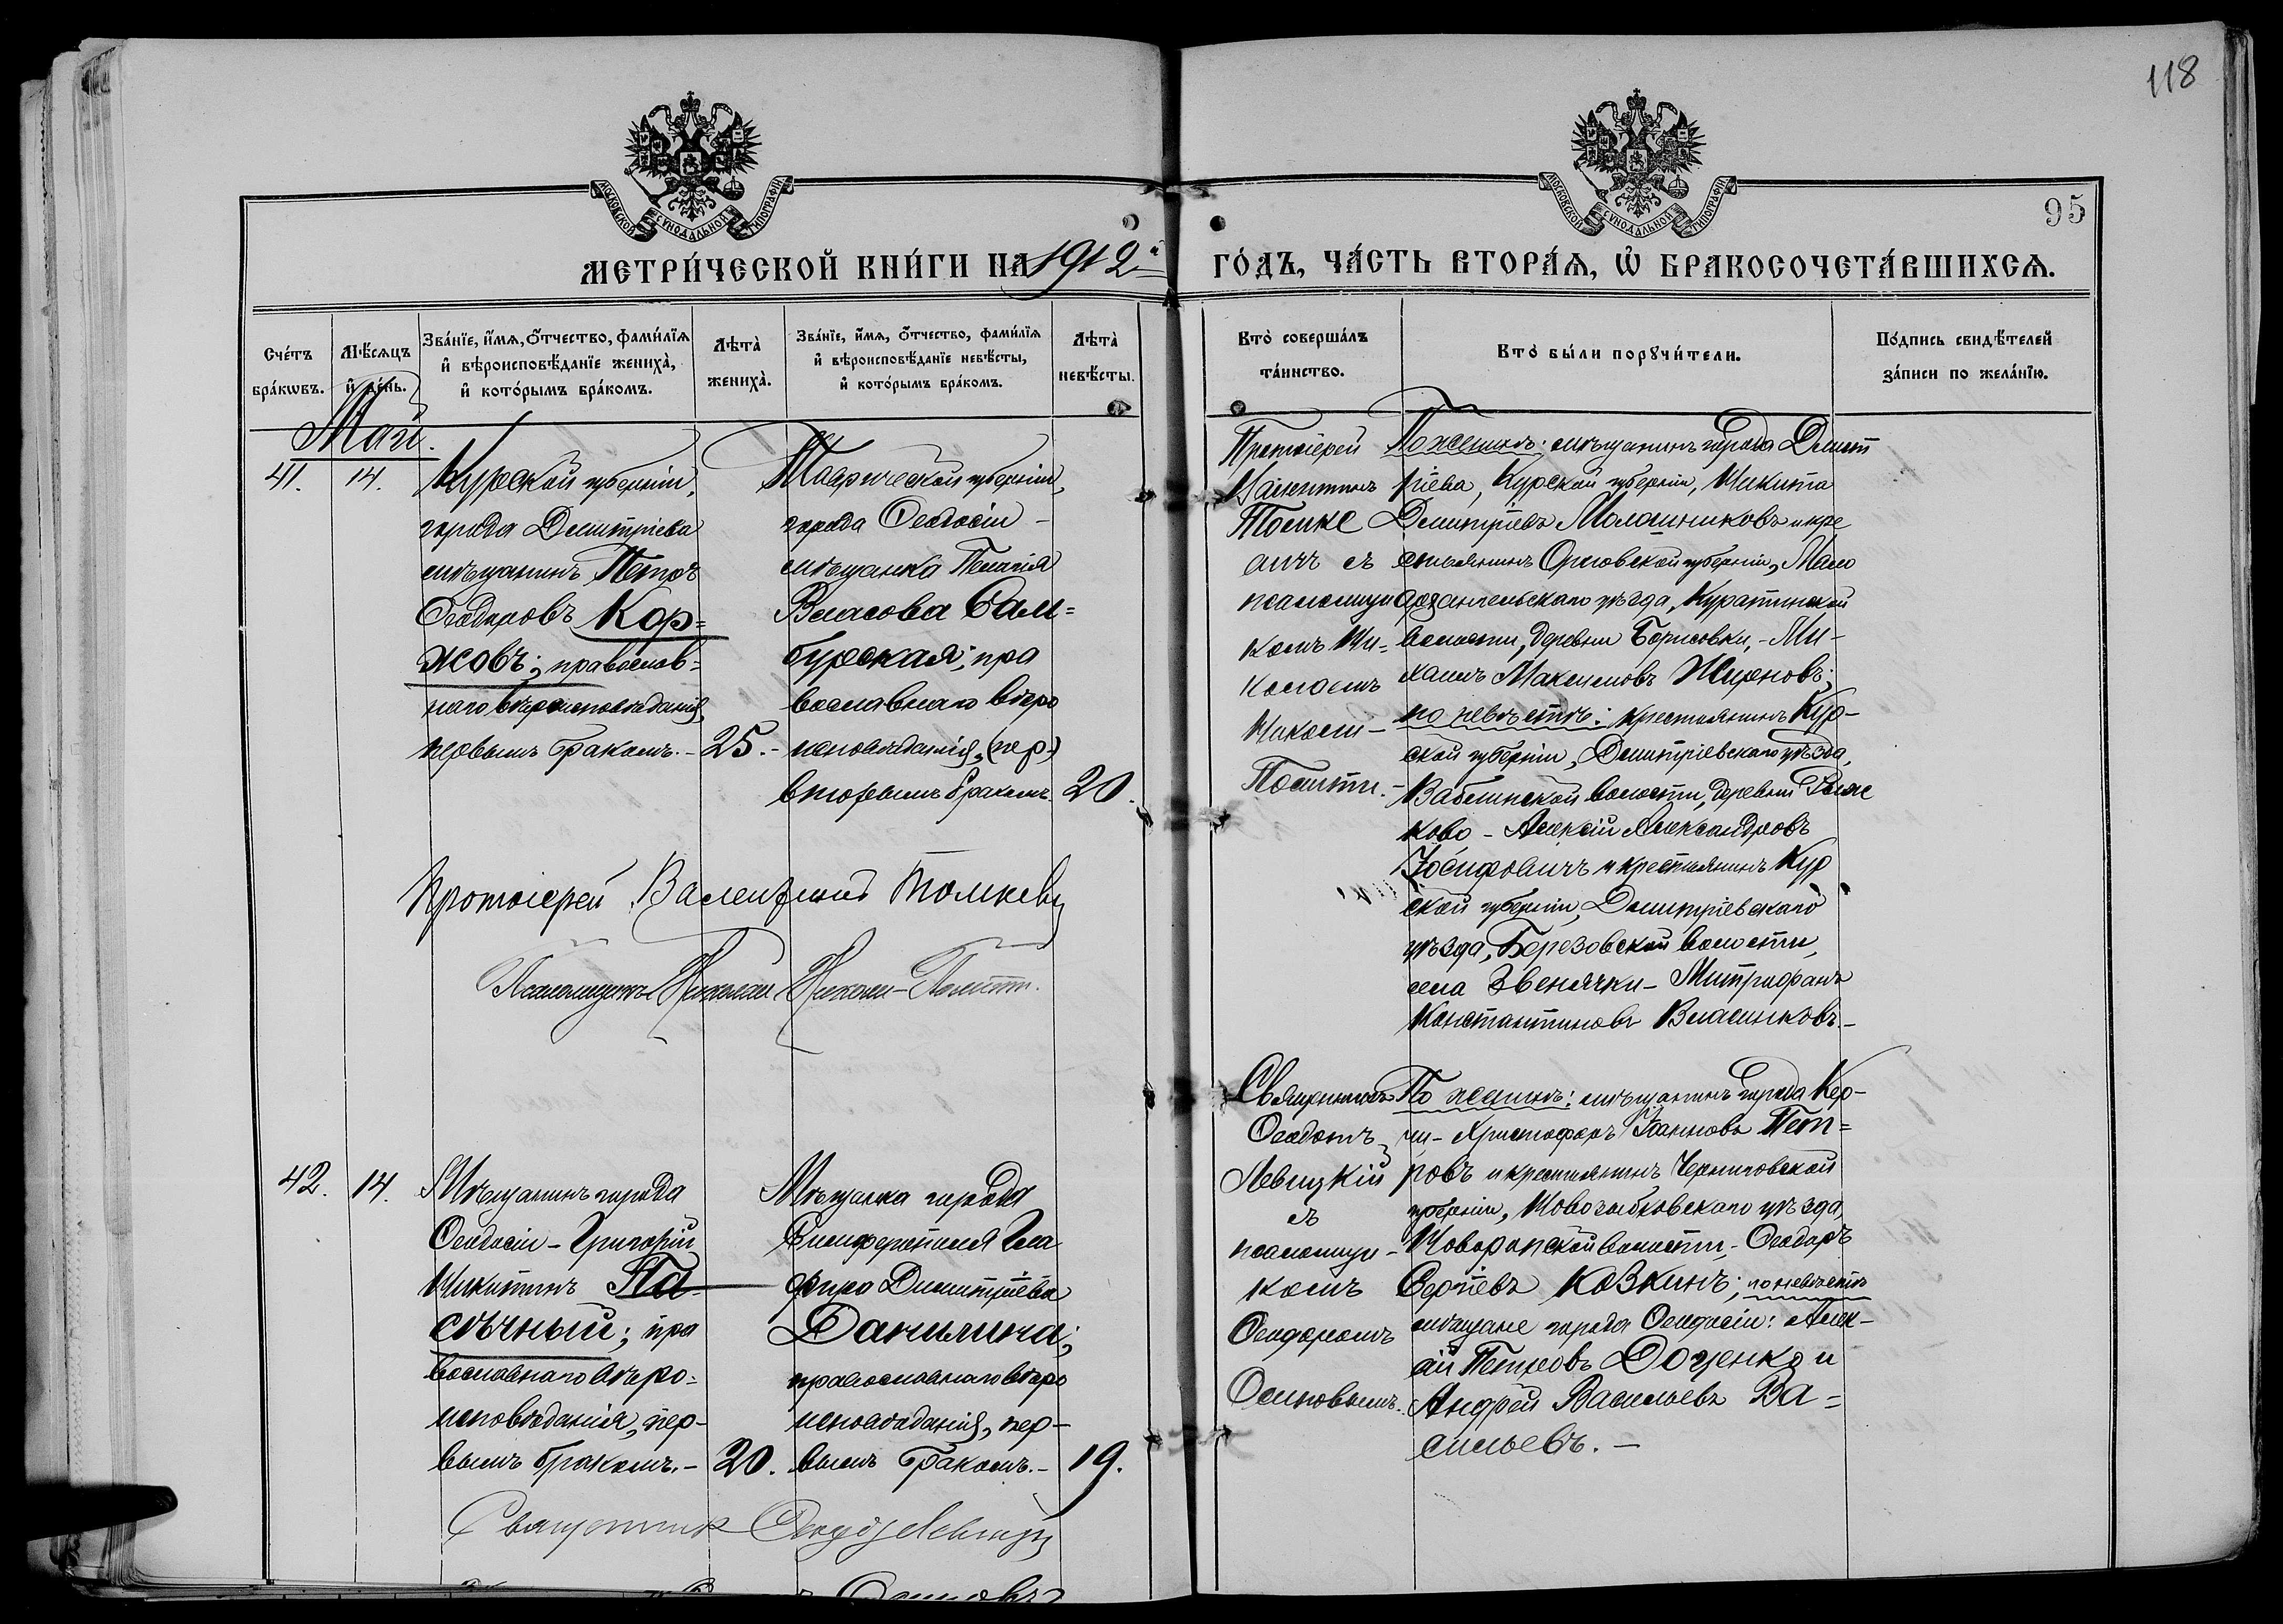 118
95
МОСКОВСКОЙ СѴНОДАЛЬНОЙ ТИПОГРАФІИ
МОСКОВСКОЙ СѴНОДАЛЬНОЙ ТИПОГРАФІИ
МЕТРИ́ЧЕСКОЙ КНИ́ГИ НА 1912й ГО́ДЪ, ЧА́СТЬ ВТОРА́Ѧ, Ѽ БРАКОСОЧЕТА́ВШИХСѦ.
Сче́тъ
бра́кѡвъ.
Мѣ́сѧцъ
и҆ де́нь.
Зва́нїе, и҆́мѧ, ѻ҆́тчество, фами́лїѧ
и҆ вѣроисповѣ́данїе жениха̀,
и҆ кото́рымъ бра́комъ.
Лѣта̀
жениха̀.
Зва́нїе, и҆́мѧ, ѻ҆́тчество, фами́лїѧ
и҆ вѣроисповѣ́данїе невѣ́сты,
и҆ кото́рымъ бра́комъ.
Лѣта̀
невѣ́сты.
Кто̀ соверша́лъ
та́инство.
Кто̀ бы́ли порꙋчи́тели.
По́дпись свидѣ́телей
за́писи по жела́нїю.
Май.
41.
14.
Курской губерніи,
города Дмитріева
мѣщанинъ Петръ
Ѳеодоровъ Кор=
жовъ; православ=
наго вѣроисповѣданія,
первымъ бракомъ.-
25.-
Таврической губерніи,
города Ѳеодосіи -
мѣщанка Пелагія
Власова Сам=
бурская; пра
вославнаго вѣро
исповѣданія, (пер-)
вторымъ бракомъ.
20.
Протоіерей
Валентинъ
Томке
вичъ съ
псаломщи
комъ Ни=
колаемъ
Николи-
Политти.-
По женихѣ: мѣщанинъ города Дмит
ріева, Курской губерніи, Никита
Дмитріевъ Молошниковъ и кре
стьянинъ Орловской губерніи, Мало
архангельскаго уѣзда, Куратинской
волости, деревни Борисовки, - Ми-
хаилъ Максимовъ Жирновъ;
по невѣстѣ: крестьянинъ Кур-
ской губерніи, Дмитріевскаго уѣзда,
Ваблинской волости, деревни
ково - Алексій Александровъ
Іосифовичъ и крестьянинъ Кур
ской губерніи, Дмитріевскаго
уѣзда, Березовской волости,
села Звенячки - Митрофанъ
Константиновъ Власенковъ.-
Протоіерей Валентинъ Томкевич
Псаломщикъ Николай Николи-Политти.
42.
14.
Мѣщанинъ города
Ѳеодосіи - Григорій
Никитинъ Па-
сѣчный; пра
вославнаго вѣро=
исповѣданія, пер-
вымъ бракомъ.-
20.
Мѣщанка города
Симферополя Гла
фира Димитріева
Данилина;
православнаго вѣро
исповѣданія, пер-
вымъ бракомъ.-
19.
Священникъ
Ѳеодотъ
Левицкій
съ
псаломщи-
комъ
Ѳеодоромъ
Осиповымъ.
По женихѣ: мѣщанинъ города Кер-
чи - Христофоръ Іоанновъ Пет=
ровъ и крестьянинъ Черниговской
губерніи, Новозыбковскаго уѣзда,
Новоропской волости, - Ѳеодоръ
Сергіевъ Козкинъ; по невѣстѣ
мѣщане города Ѳеодосіи: Алек-
сій Петровъ Доценко и
Андрей Васильевъ Ва=
сильевъ. -
Священник Ѳеодот Левицкий
Осиповъ